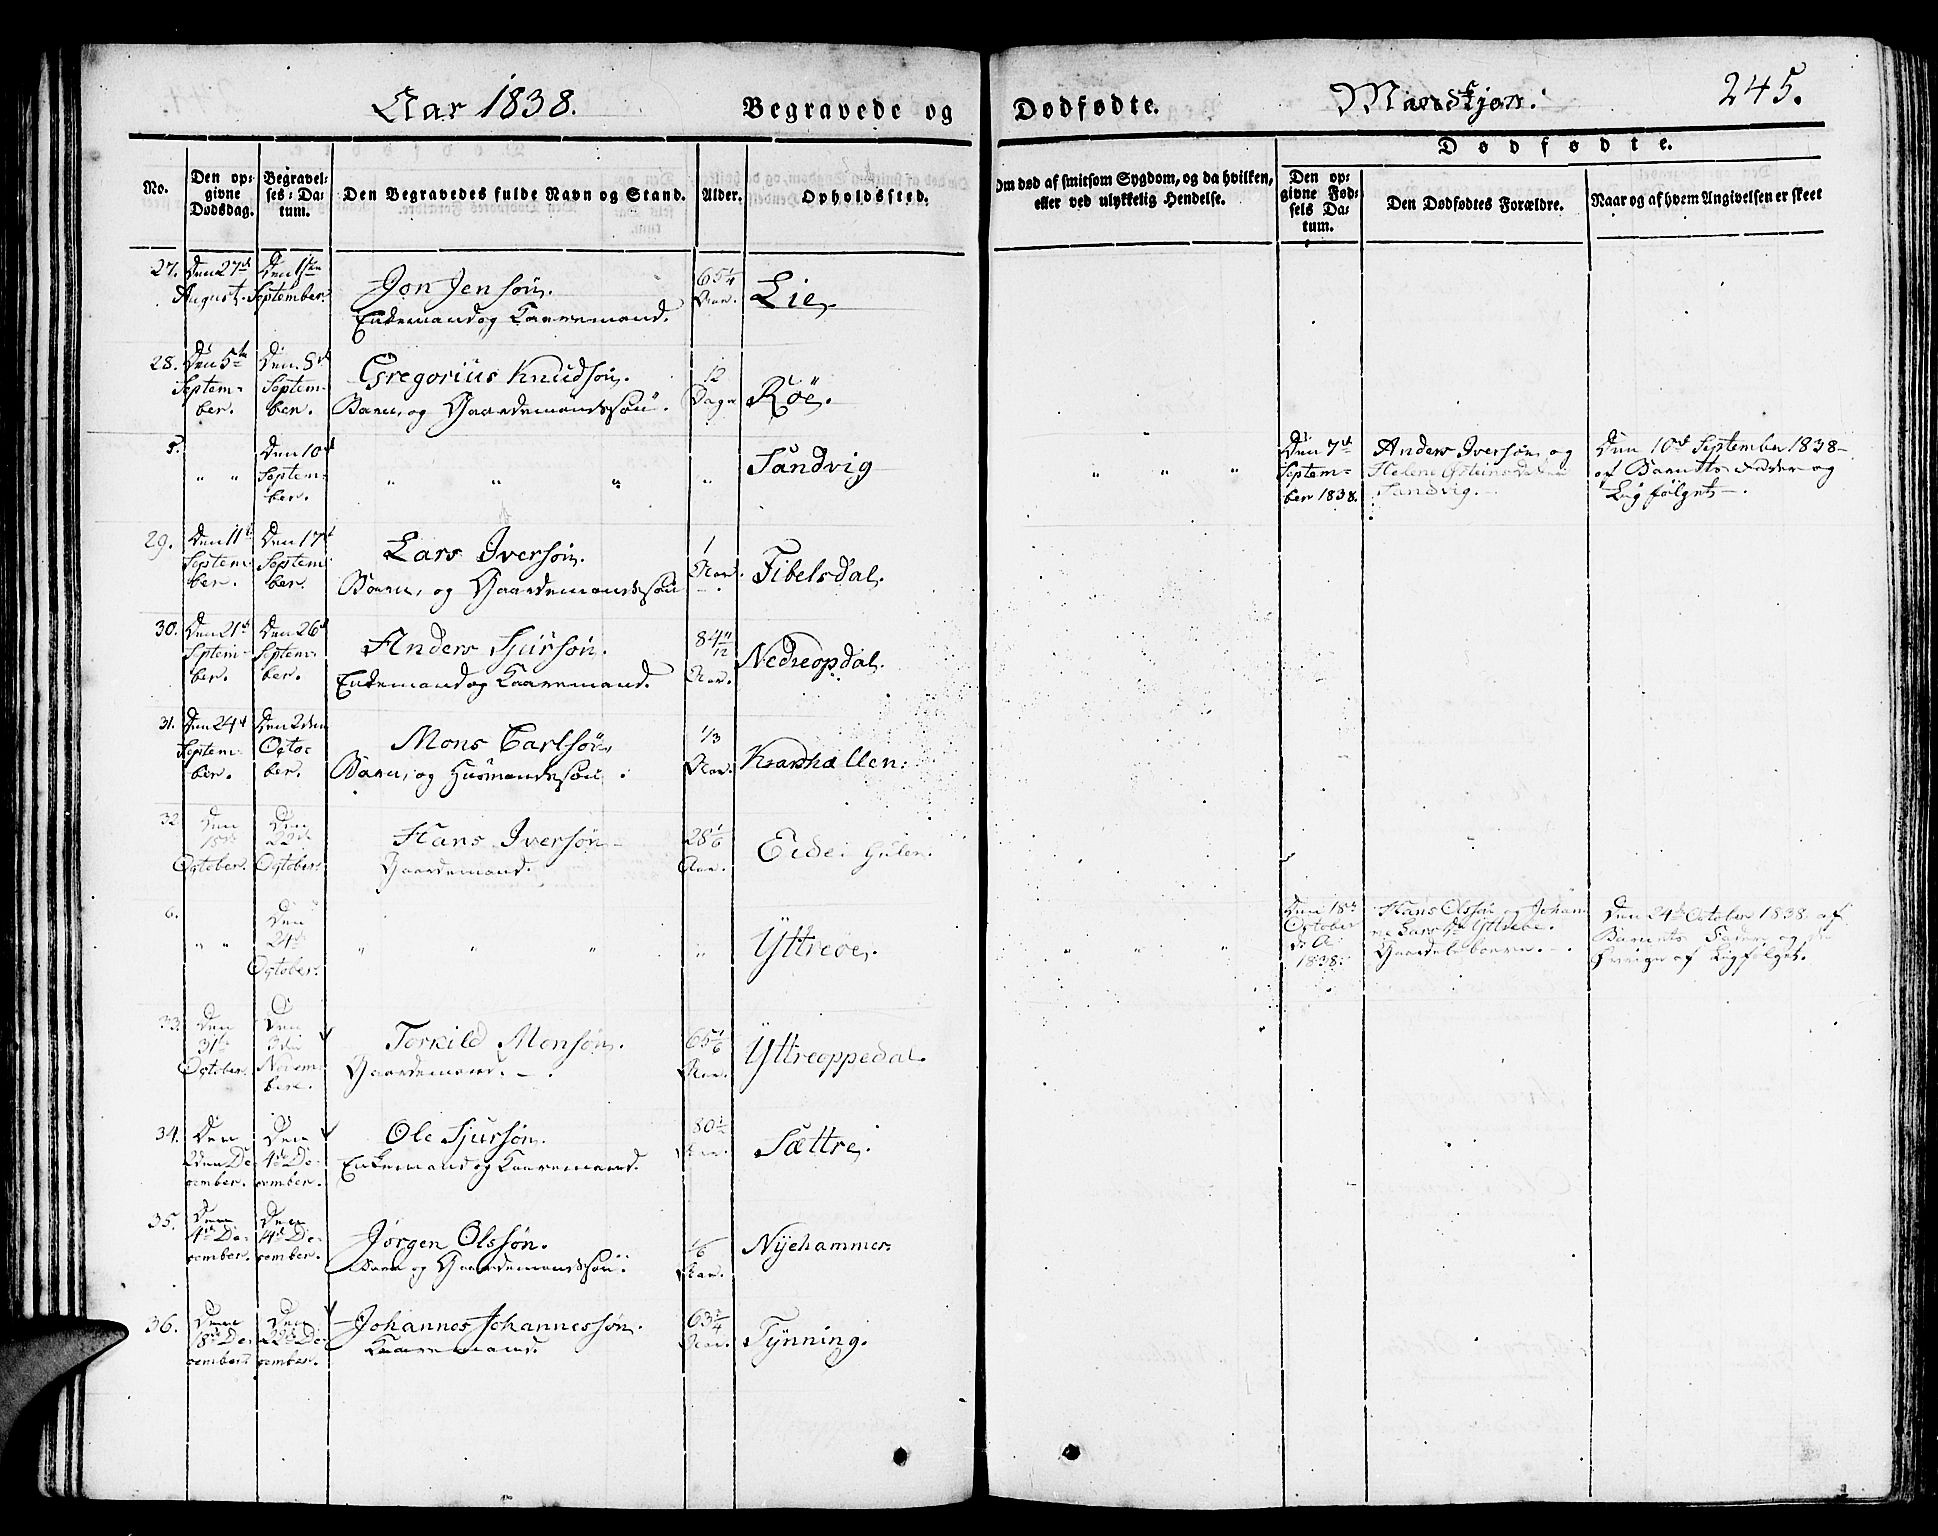 Aar 1838.
Begravede og Dødfødte.
Mandkjøn:
245.
No.
Den opgivne Dødsdag.
Begravelses-Datum.
Den Begravedes fulde Navn og Stand.
Alder.
Opholdssted.
Om død af smitsom Sygdom, og da hvilken, eller ved ulykkelig Hendelse.
Dødfødte.
Den opgivne Fødsels Datum.
Den Dødfødtes Forældre.
Naar og af hvem Angivelsen er skeet
27. Den 27de August. Den 1ste September.
Jon Jensøn.
Enkemand og Kaaremand.
65 1/4 Aar.
Lie.
28. Den 5te September. Den 8de September.
Gregorius Knudsøn.
Barn, og Gaardemandssøn.
12 Dage
Røe.
5. " " Den 10de September. " " " "
Sandvig
" " "
Den 7de September 1838.
Anders Iversøn og
Helene Østensdatter
Sandvig.
Den 10de September 1838
af Barnets Fader og
Ligfølget.
29. Den 11te September. Den 17de September.
Lars Iversøn.
Barn, og Gaardemandssøn
1 Aar.
Tibelsdal.
30. Den 21de September. Den 26de September.
Anders Sjursøn.
Enkemand og Kaaremand.
84 11/12 Aar.
Nedreopdal.
31. Den 24de September. Den 2den October.
Mons Carlsøn
Barn, og Husmandssøn.
1/3 Aar.
Krashællen.
32. Den 15de October. Den 22de October.
Hans Iversøn
Gaardemand.
28 1/6 Aar.
Eide. Gulen.
6. " " Den 24de October. " " " "
Yttreøe.
" " "
Den 18de October d. A. 1838.
Hans Olssøn og Johanne
Larsdtr Yttreøe.
Gaardebeboere.
Den 24de October 1838. af
Barnets Fader og de
Øvrige af Ligfølget.
33. Den 31te October. Den 3die November.
Torkild Monsøn.
Gaardemand.
65 1/6 Aar.
Yttreoppedal.
34. Den 2den December. Den 4de December.
Ole Sjursøn.
Enkemand og Kaaremand.
80 1/2 Aar.
Sættre.
35. Den 4de December. Den 14de December.
Jørgen Olssøn.
Barn og Gaardemandssøn.
1/6 Aar.
Nyehammer.
36. Den 18de December. Den 22de December.
Johannes Johannessøn.
Kaaremand.
63 1/4 Aar.
Tynning.